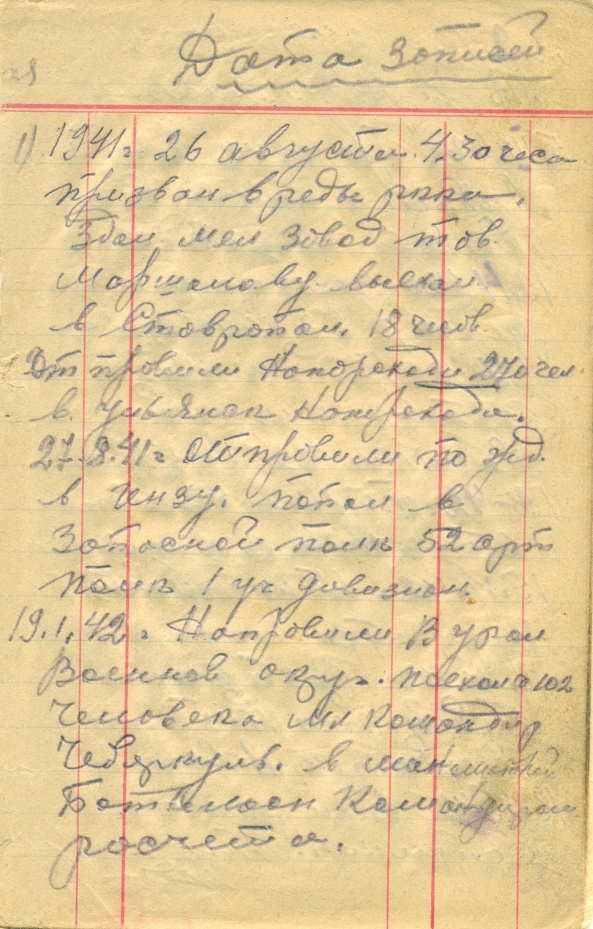 Дата записей
1). 1941 г. 26 августа. 4.30 часа
призван в ряды ркка.
Здал завод тов.
Маршалову выехал
в Ставропол. 18 часов
Отправили 270 чел.
в Ульянов
27.8.41 г Отправили по жд.
в Пензу. попал в
Запасной полк 52 арт
полк 1 уч дивизион
19.1.42 г. Направили в урал
Военнов окру. поехало 102
человека мл командир
Чебаркуль. в
Баталион Командиром
росчета.